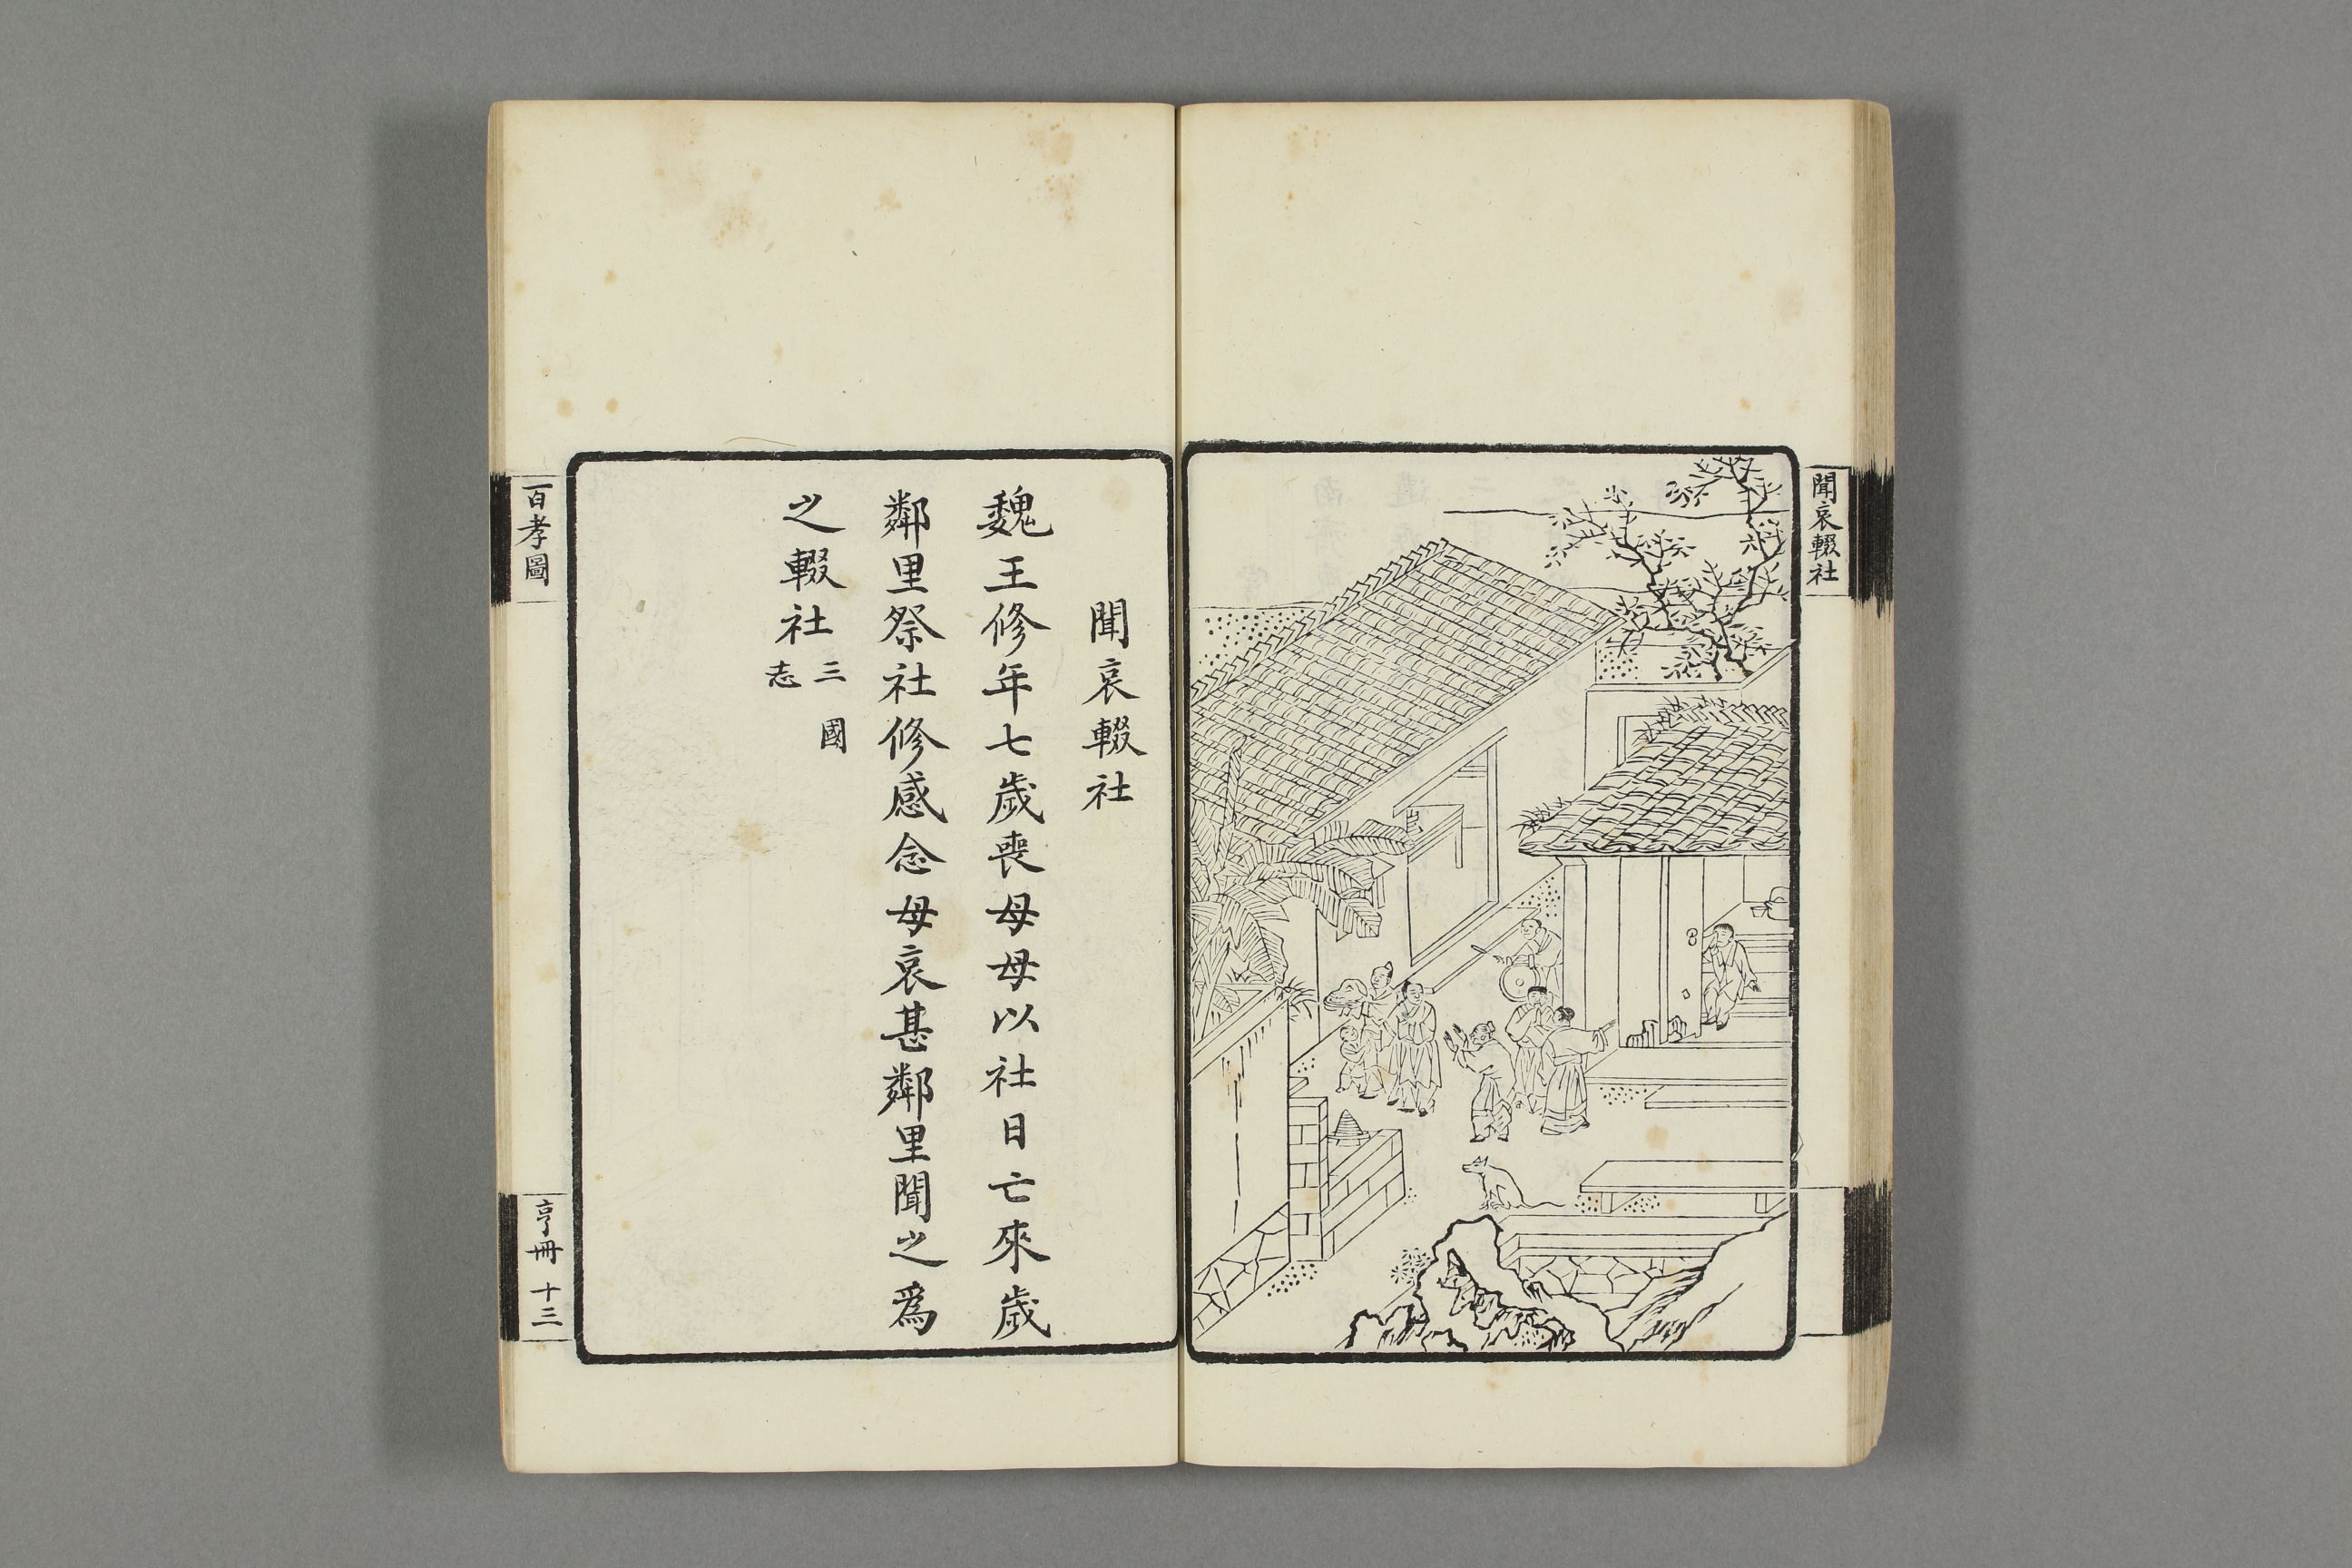 聞哀輟社
聞哀輟社
魏王修年七歲喪母母以社日亡來歲
鄰里祭社修感念母哀甚鄰里聞之爲
之輟社三國
志
百孝圖
亨冊 十三